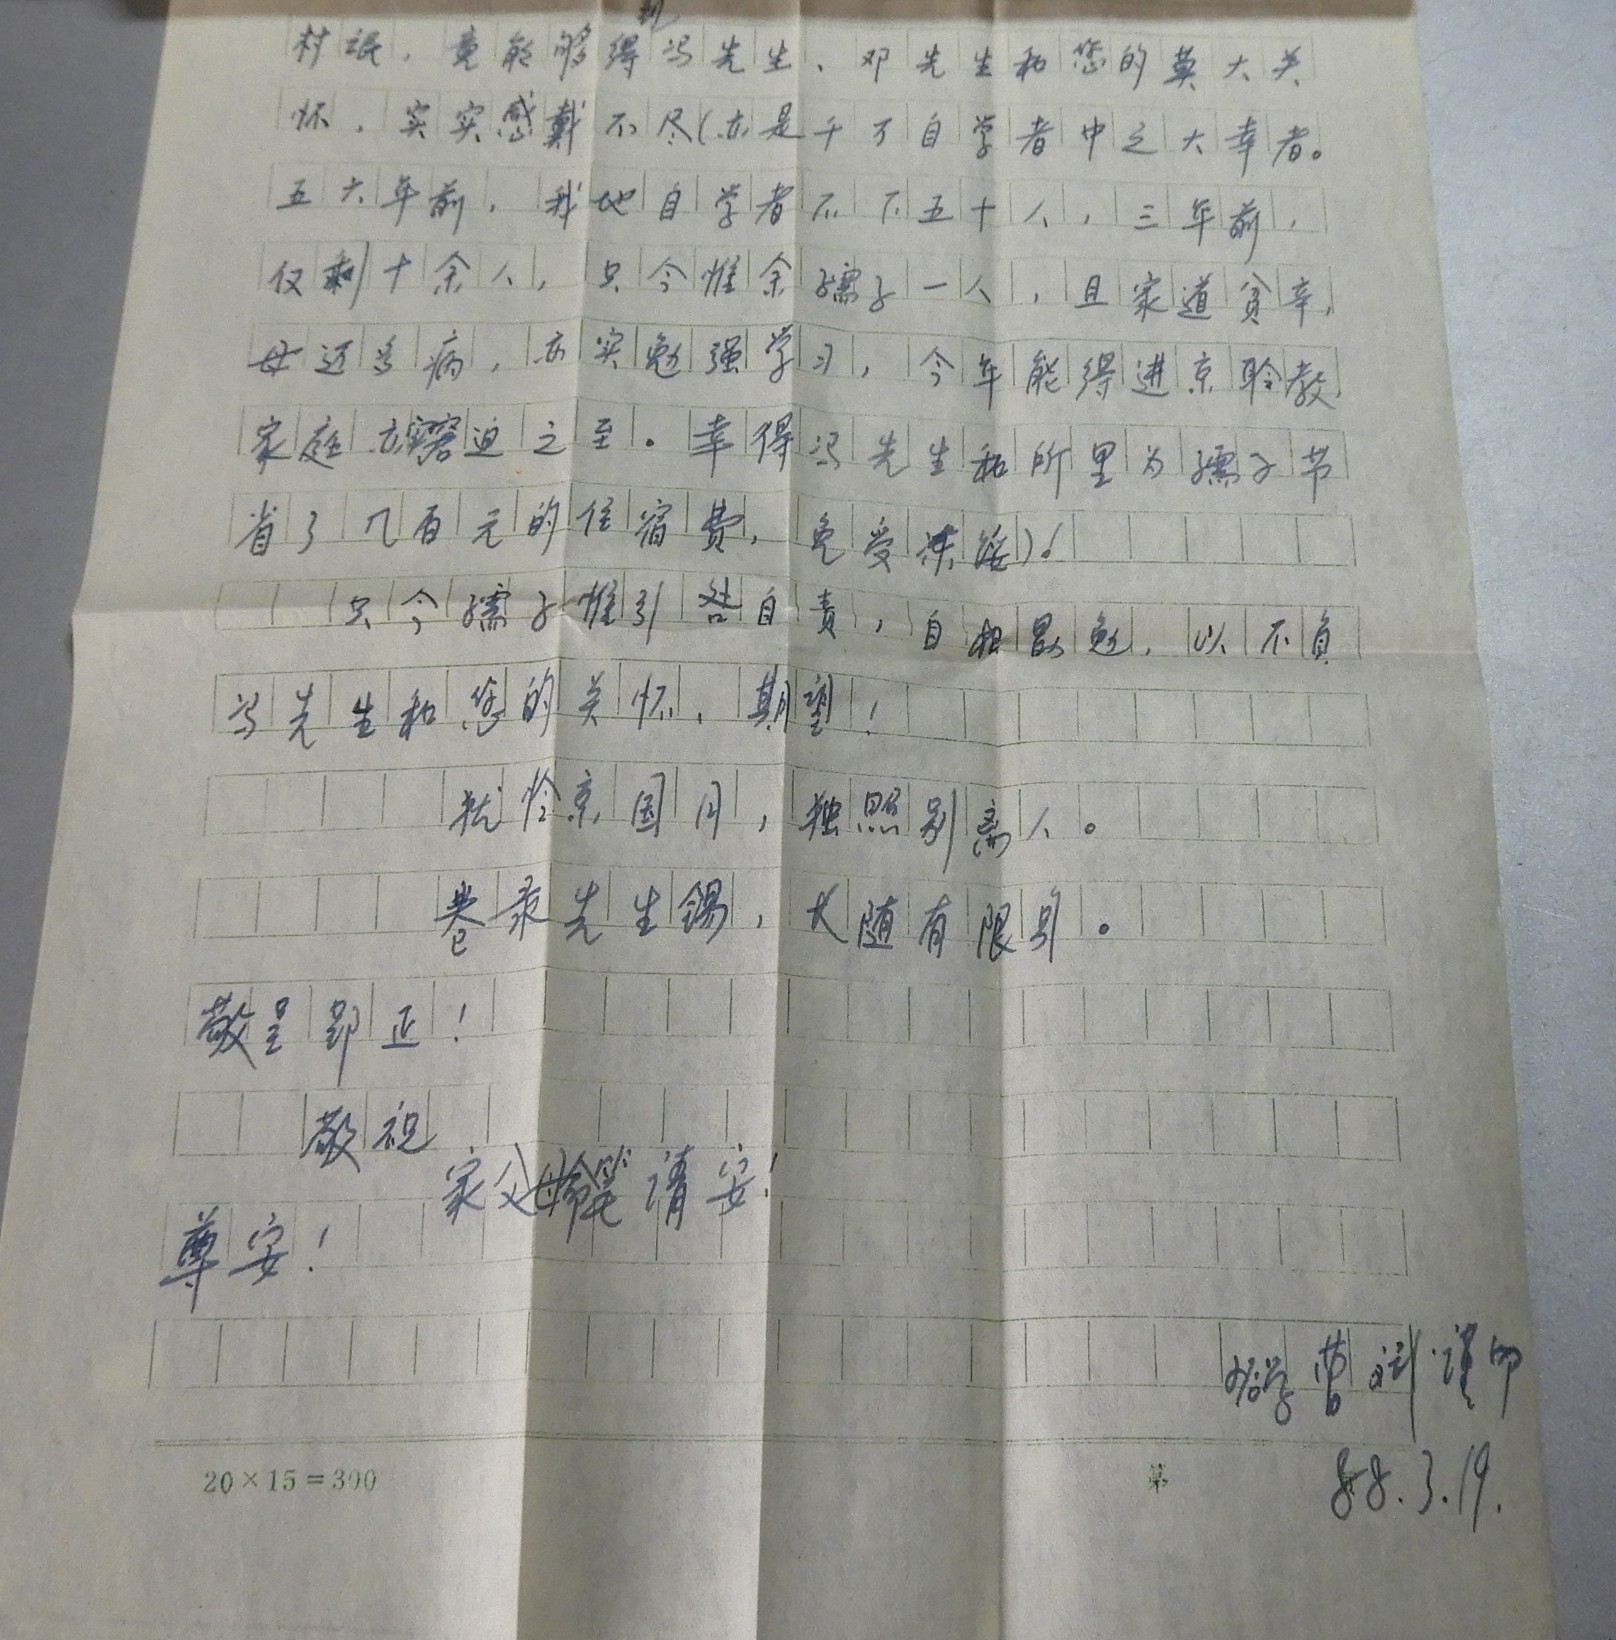 村氓，竟能够得到冯先生、邓先生和您的莫大关
怀，实实感戴不尽（亦是千万自学者中之大幸者。
五六年前，我地自学者不下五十人，三年前，
仅剩十余人，只今惟余孺子一人，且家道贫辛，
母还多病，亦实勉强学习，今年能得进京聆教，
家庭亦实窘迫之至。幸得冯先生和所里为孺子节
省了几百元的住宿费，免受冻馁）！
只今孺子惟引咎自责，自相勖勉，以不负
冯先生和您的关怀、期望！
犹怜京国月，独照别离人。
卷录先生锡，长随有限身。
敬呈郢正！
敬祝
家父母 请安！
尊安！
后学曹 谨叩
88.3.19.
20×15=300
第